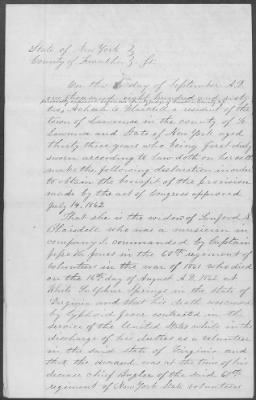 State of New York }
County of Franklin } ss.
On this day of September A.D.
one thousand eight hundred and sixty
two, Blaisdell a resident of the
town of Lawrence in the county of St
Lawrence and State of New York aged
thirty three years who being first duly
sworn according to law doth on her oath
make the following declaration in order
to obtain the benefit of the provision
made by the act of Congress approved
July 14, 1862
That she is the widow of Sanford S
Blaisdell who was a musician in
company I. commanded by Captain
Jones in the 60th regiment of
volunteers in the war of 1861 who died
on the 16th day of August A.D. 1862 at
White Sulphur Springs in the state of
Virginia and that his death was caused
by typhoid fever contracted in the
service of the United States while in the
discharge of his duties as a volunteer
in the said state of Virginia and
that the deceased was at the time of his
decease chief Bugler of the said 60th
regiment of New York State volunteers